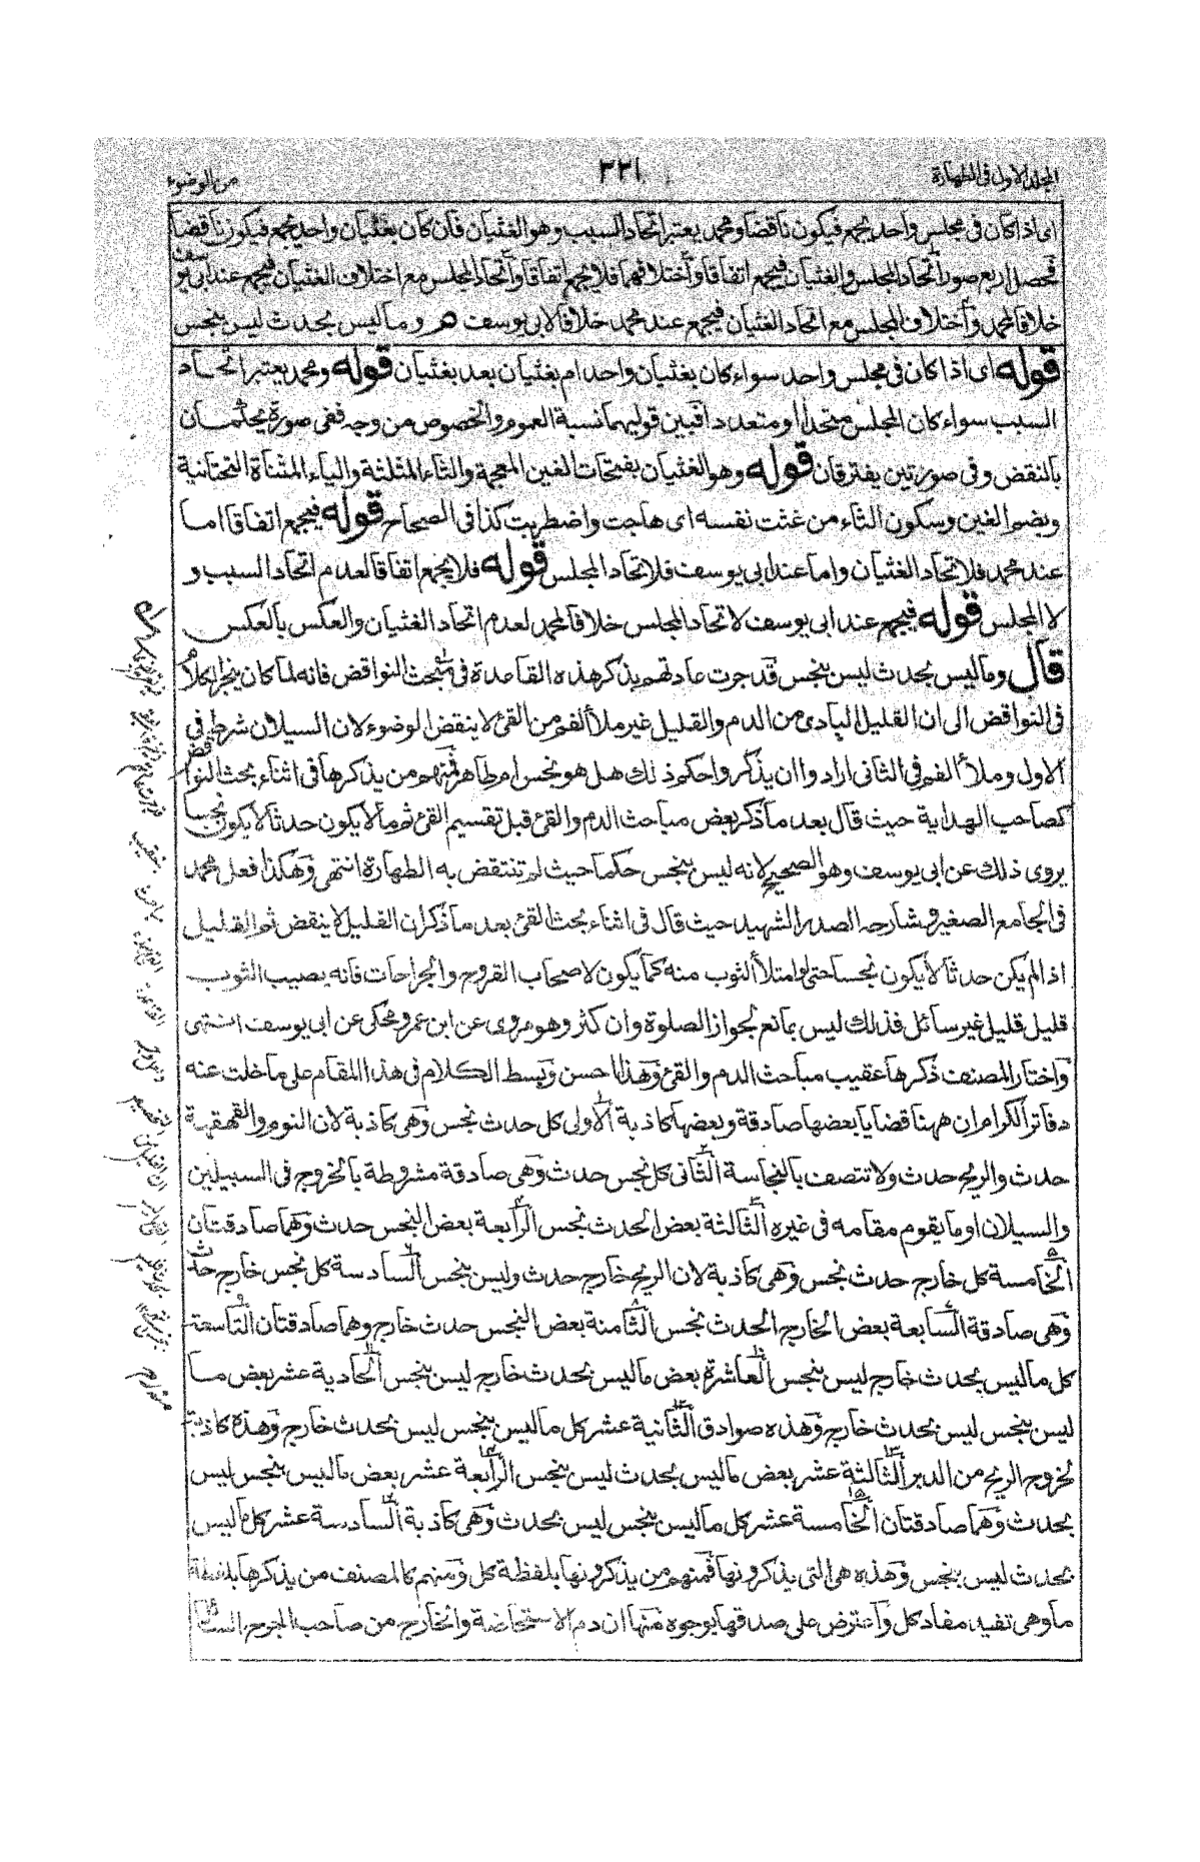 المجلد الاول فى الطهارة
٢٢١
من الوضوء
اى اذا كان فى مجلس واحد يجمع فيكون ناقضا ومحمد يعتبر اتحاد السبب وهو الغثيان فان كان بغثيان واحد يجمع فيكون ناقضا
فحصل اربع صور اتحاد المجلس والغثيان فيجمع اتفاقا واختلافهما فلا يجمع اتفاقا واتحاد المجلس مع اختلاف الغثيان فيجمع عند ابى يوسف
خلافا لمحمد واختلاف المجلس مع اتحاد الغثيان فيجمع عند محمد خلافا لابى يوسف هر وما ليس بحدث ليس بنجس
قوله اى اذا كان فى مجلس واحد سواء كان بغثيان واحد ام بغثيان بعد بغثيان قوله ومحمد يعتبر اتحاد
السبب سواء كان المجلس متحدا او متعددا فبين قوليهما نسبة العموم والخصوص من وجه ففى صورة يجتمعان
بالنقض وفى صورتين يفترقان قوله وهو الغثيان بفتحات الغين المعجمة والثاء المثلثة والياء المثناة التحتانية
وبضم الغين وسكون الثاء من غثت نفسه اى هاجت واضطربت كذا فى الصحاح قوله فيجمع اتفاقا اما
عند محمد فلاتحاد الغثيان واما عند ابى يوسف فلاتحاد المجلس قوله فلا يجمع اتفاقا لعدم اتحاد السبب و
لا المجلس قوله فيجمع عند ابى يوسف لاتحاد المجلس خلافا لمحمد لعدم اتحاد الغثيان والعكس بالعكس
قال وما ليس بحدث ليس بنجس قد جرت عادتهم بذكر هذه القاعدة فى مبحث النواقض فانه لما كان ينجر الكلام
فى النواقض الى ان القليل البادى من الدم والقليل غير ملأ الفم من القئ لا ينقض الوضوء لان السيلان شرط فى
الاول وملأ الفم فى الثانى ارادوا ان يذكروا حكم ذلك هل هو نجس ام طاهر فمنهم من يذكرها فى اثناء بحث النواقض
كصاحب الهداية حيث قال بعد ما ذكر بعض مباحث الدم والقئ قبل تقسيم القئ ثم ما لا يكون حدثا لا يكون نجسا
يروى ذلك عن ابى يوسف وهو الصحيح لانه ليس بنجس حكما حيث لم تنتقض به الطهارة انتهى وهكذا فعل محمد
فى الجامع الصغير وشارحه الصدر الشهيد حيث قال فى اثناء بحث القئ بعد ما ذكر ان القليل لا ينقض ثم القليل
اذا لم يكن حدثا لا يكون نجسا حتى لو امتلأ الثوب منه كما يكون لاصحاب القروح والجراحات فانه يصيب الثوب
قليل قليل غير سائل فذلك ليس بمانع لجواز الصلوة وان كثر وهو مروى عن ابن عمر ومحكى عن ابى يوسف انتهى
واختار المصنف ذكرها عقيب مباحث الدم والقئ وهذا احسن وبسط الكلام فى هذا المقام على ما خلت عنه
دفاتر الكرام ان ههنا قضايا بعضها صادقة وبعضها كاذبة الاولى كل حدث نجس وهى كاذبة لان النوم والقهقهة
حدث والريح حدث ولا تتصف بالنجاسة الثانى كل نجس حدث وهى صادقة مشروطة بالخروج فى السبيلين
والسيلان او ما يقوم مقامه فى غيره الثالثة بعض الحدث نجس الرابعة بعض النجس حدث وهما صادقتان
الخامسة كل خارج حدث نجس وهى كاذبة لان الريح خارج حدث وليس بنجس السادسة كل نجس خارج حدث
وهى صادقة السابعة بعض الخارج الحدث نجس الثامنة بعض النجس حدث خارج وهما صادقتان التاسعة
كل ما ليس بحدث خارج ليس بنجس العاشرة بعض ما ليس بحدث خارج ليس بنجس الحادية عشر بعض ما
ليس بنجس ليس بحدث خارج وهذه صوادق الثانية عشر كل ما ليس بنجس ليس بحدث خارج وهذه كاذبة
لخروج الريح من الدبر الثالثة عشر بعض ما ليس بحدث ليس بنجس الرابعة عشر بعض ما ليس بنجس ليس
بحدث وهما صادقتان الخامسة عشر كل ما ليس بنجس ليس بحدث وهى كاذبة السادسة عشر كل ما ليس
بحدث ليس بنجس وهذه هى التى يذكرونها فمنهم من يذكرونها بلفظة كل ومنهم كالمصنف من يذكرها بلفظة
ما وهى تفيد مفاد كل واعترض على صدقها بوجوه منها ان دم الاستحاضة والخارج من صاحب الجرح السائل